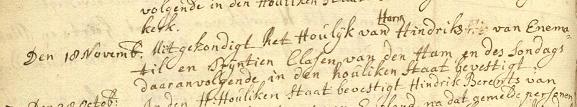 volgende in den houliken staat
kerk.
Den 18 Novemb: Uitgekondigt het Houlyk van Harm Hindriks van Enema-
til en Tryntien Clasen van den Ham en des sondags
daaranvolgende in den houliken staat bevestigt
In den H: Houliken staat bevestigt Hindrik Berents van
na dat gemelde personen